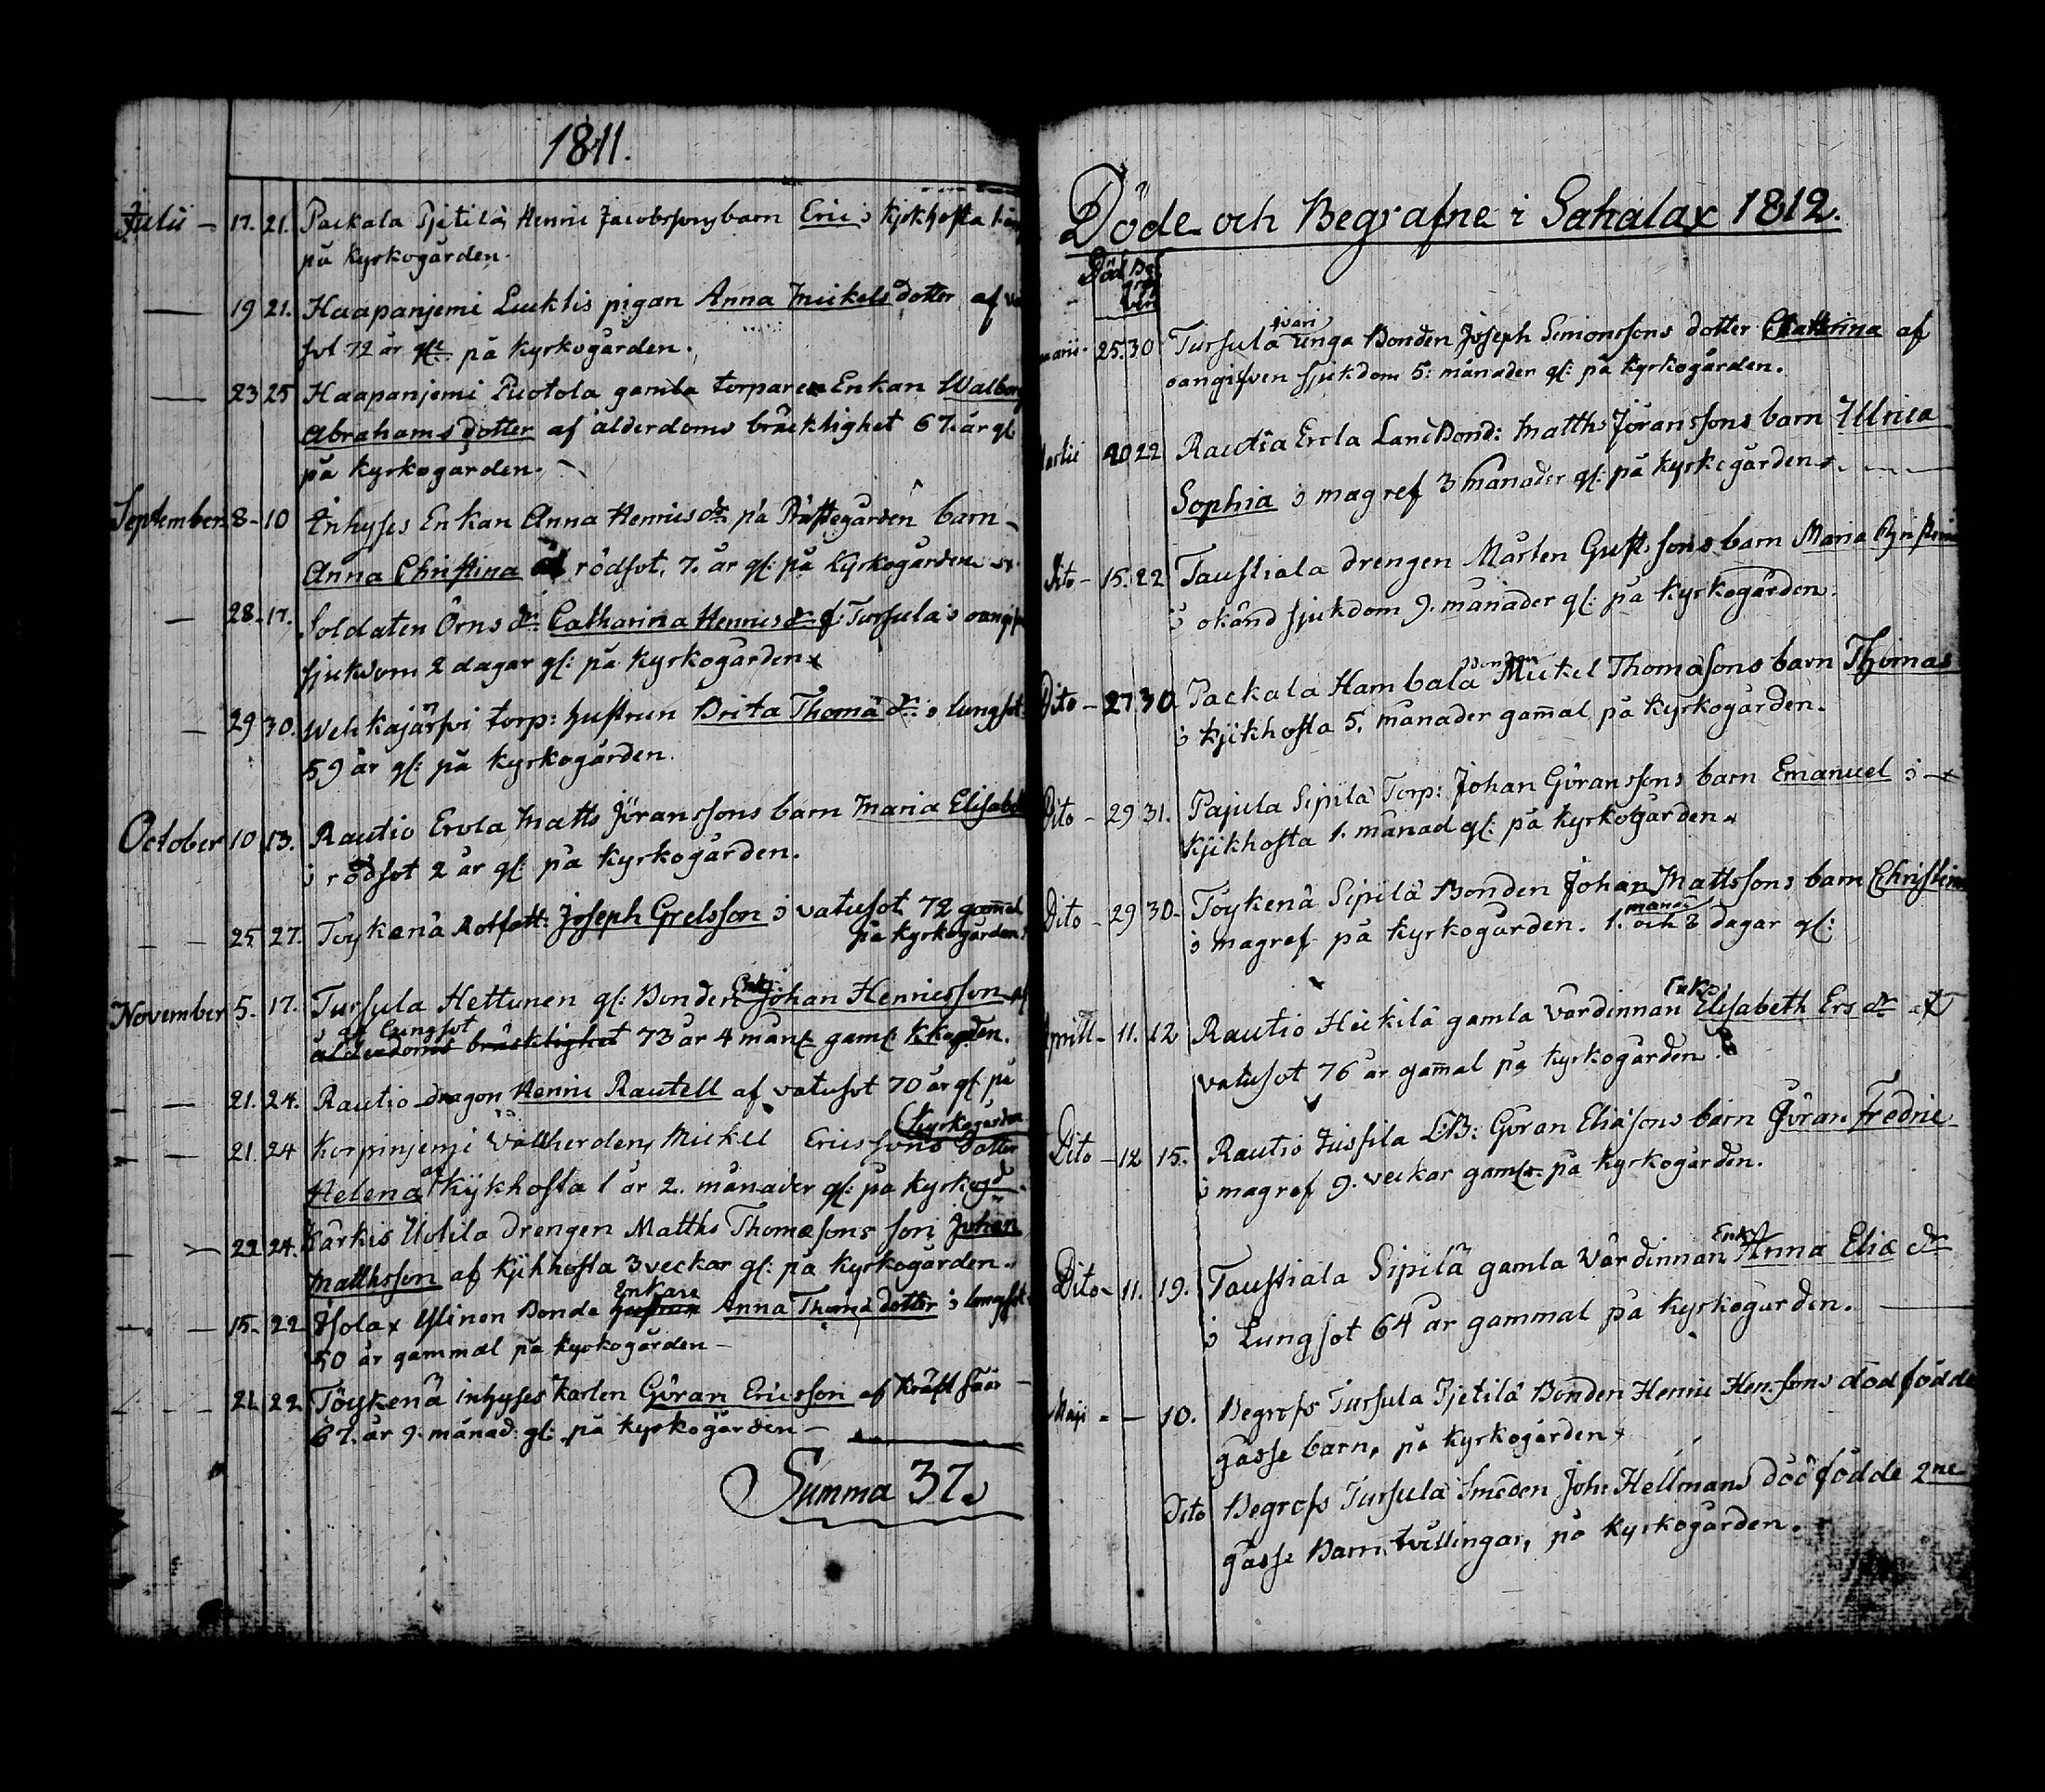 1811.
Julii - 17. 21. Packala Pjetilä Henric Jacobssons barn Eric i kjkhosta
på kyrkogården.
— 19 21. Haapanjemi Lucklis pigan Anna Mickelsdotter af
sot 72 år gl: på kyrkogården.
— 23 25 Haapanjemi Puotola gamla torpare Enkan Walborg
Abrahamsdotter af ålderdoms bräcklighet 67. år gl:
på kyrkogården. -
September 8-10 Inhyses Enkan Anna Henricsdr på Prästegården barn -
Anna Christina af rödsot, 7. år gl: på kyrkogården
— 28-17. Soldaten Örns dr. Catharina Henricsdr f: Tursula i oangif
sjukdom 2 dagar gl: på kyrkogården
— 29 30. Wehkajärfvi torp: hustrun Brita Thomædr: i lungsot
59 år gl: på kyrkogården.
October 10 13. Rautio Erola Matts Jöranssons barn Maria Elisabet
i rödsot 2 år gl: på kyrkogården.
- - 25 27. Töykenä Rotfatt: Joseph Grelsson i vatusot 72 gammal
på kyrkogården.
November 5. 17. Tursula Hettunen gl: Bonden Enkl: Johan Henricsson af
i Lungsot
ålderdoms bräcklighet 73 år 4 mån: gaml: kkogden.
- — 21. 24. Rautio dragon Henric Rautell af vatusot 70 år gl: på
(kyrkogården
- — 21. 24 Korpinjemi Vallherden Mickel Ericssons dotter
Helena af kykhosta 1 år 2. månader gl: på kyrkogd.
- — 22 24. Kärkis Uotila drengen Matths Thomæsons son Johan
Matthsson af kjkhosta 3 veckar gl: på kyrkogården.
- — 15- 22 Isolax Ylinen Bonde hustrun Enkan Anna Thomædotter i lungsot
50 år gammal på kyrkogården -
- - 21 22 Töykenä inhyses karlen Göran Ericsson af kräftsår
67. år 9. månad: gl: på kyrkogården -
Summa 37.
Döde och Begrafne i Sahalax 1812.
Död Be
gra
ven
25. 30 Tursula jvari unga Bonden Joseph Simonssons dotter Catharina af
oangifven sjukdom 5: månader gl: på kyrkogården.
20 22 Rautia Erola LaneBond: Matths Jöranssons barn Ulrica
Sophia i magref 3 månader gl: på kyrkogården.
Dito - 15. 22 Taustiala drengen Mårten Gust:sons barn Maria Christina
i okänd sjukdom 9. månader gl: på kyrkogården.
Dito - 27 30 Packala Hambala bonden Mickel Thomäsons barn Thomas
i kjikhosta 5. månader gamal på kyrkogården.
Dito - 29 31. Pajula Sipilä Torp: Johan Göranssons barn Emanuel i
kjikhosta 1. månad gl: på kyrkogården
Dito - 29 30- Töykenä Sipilä Bonden Johan Mattssons barn Christina
i magref på kyrkogården. 1. månad och 8 dagar gl:
Aprill - 11. 12 Rautio Heikilä gamla värdinnan Enk: Elisabeth Ersdr af
vatusot 76 år gamal på kyrkogården.
Dito - 12 15. Rautio Jussila LB: Göran Eliäsons barn Göran Fredric
i magref 9. veckar gaml: på kyrkogården.
Dito - 11. 19. Taustiala Sipilä gamla värdinnan Enk: Anna Eliædr
i Lungsot 64 år gammal på kyrkogården. —
Maji - — 10. Begrofs Tursula Pjetilä Bonden Henric Hen:sons dödfödde
gosse barn, på kyrkogården
Dito Begrofs Tursula Smeden Joh: Hellmans dödfödde 2ne
gosse Barn tvillingar, på kyrkogården.